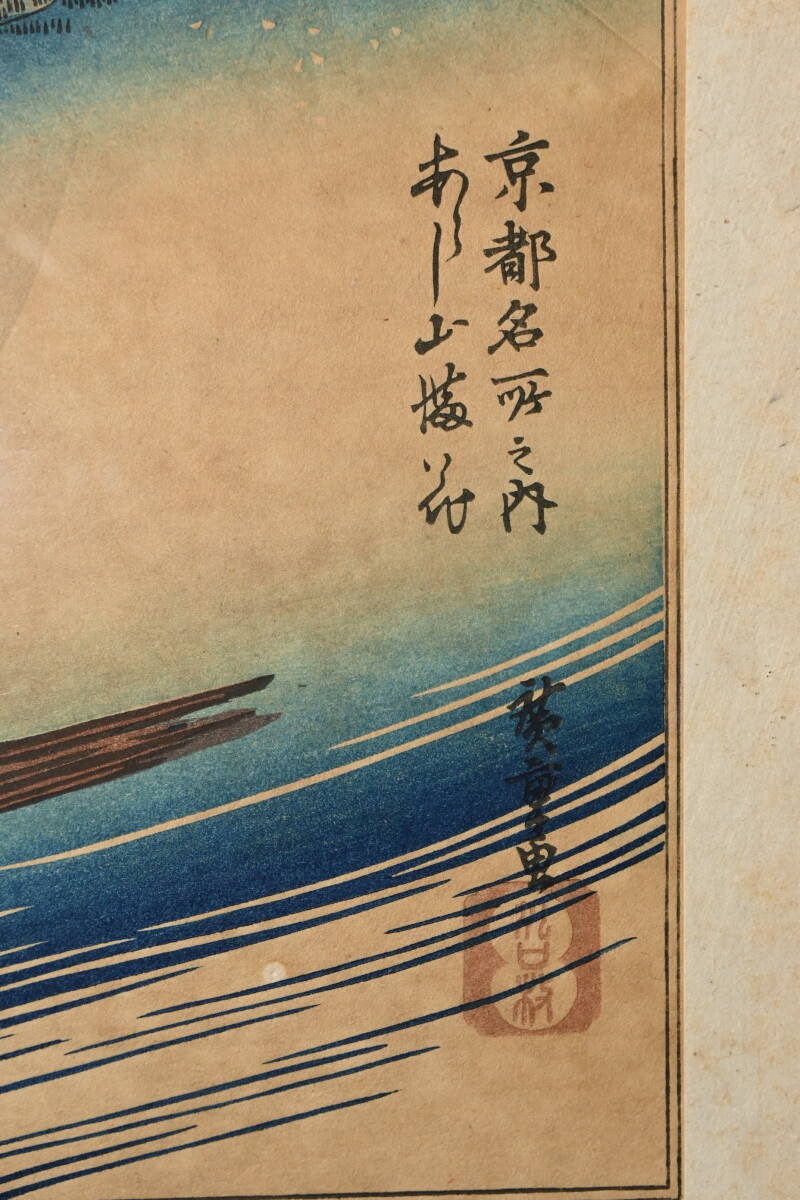 京都名所之内
あらし山満花
廣重画